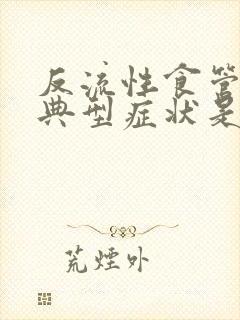 反流性食管
典型症状是
荒煙外